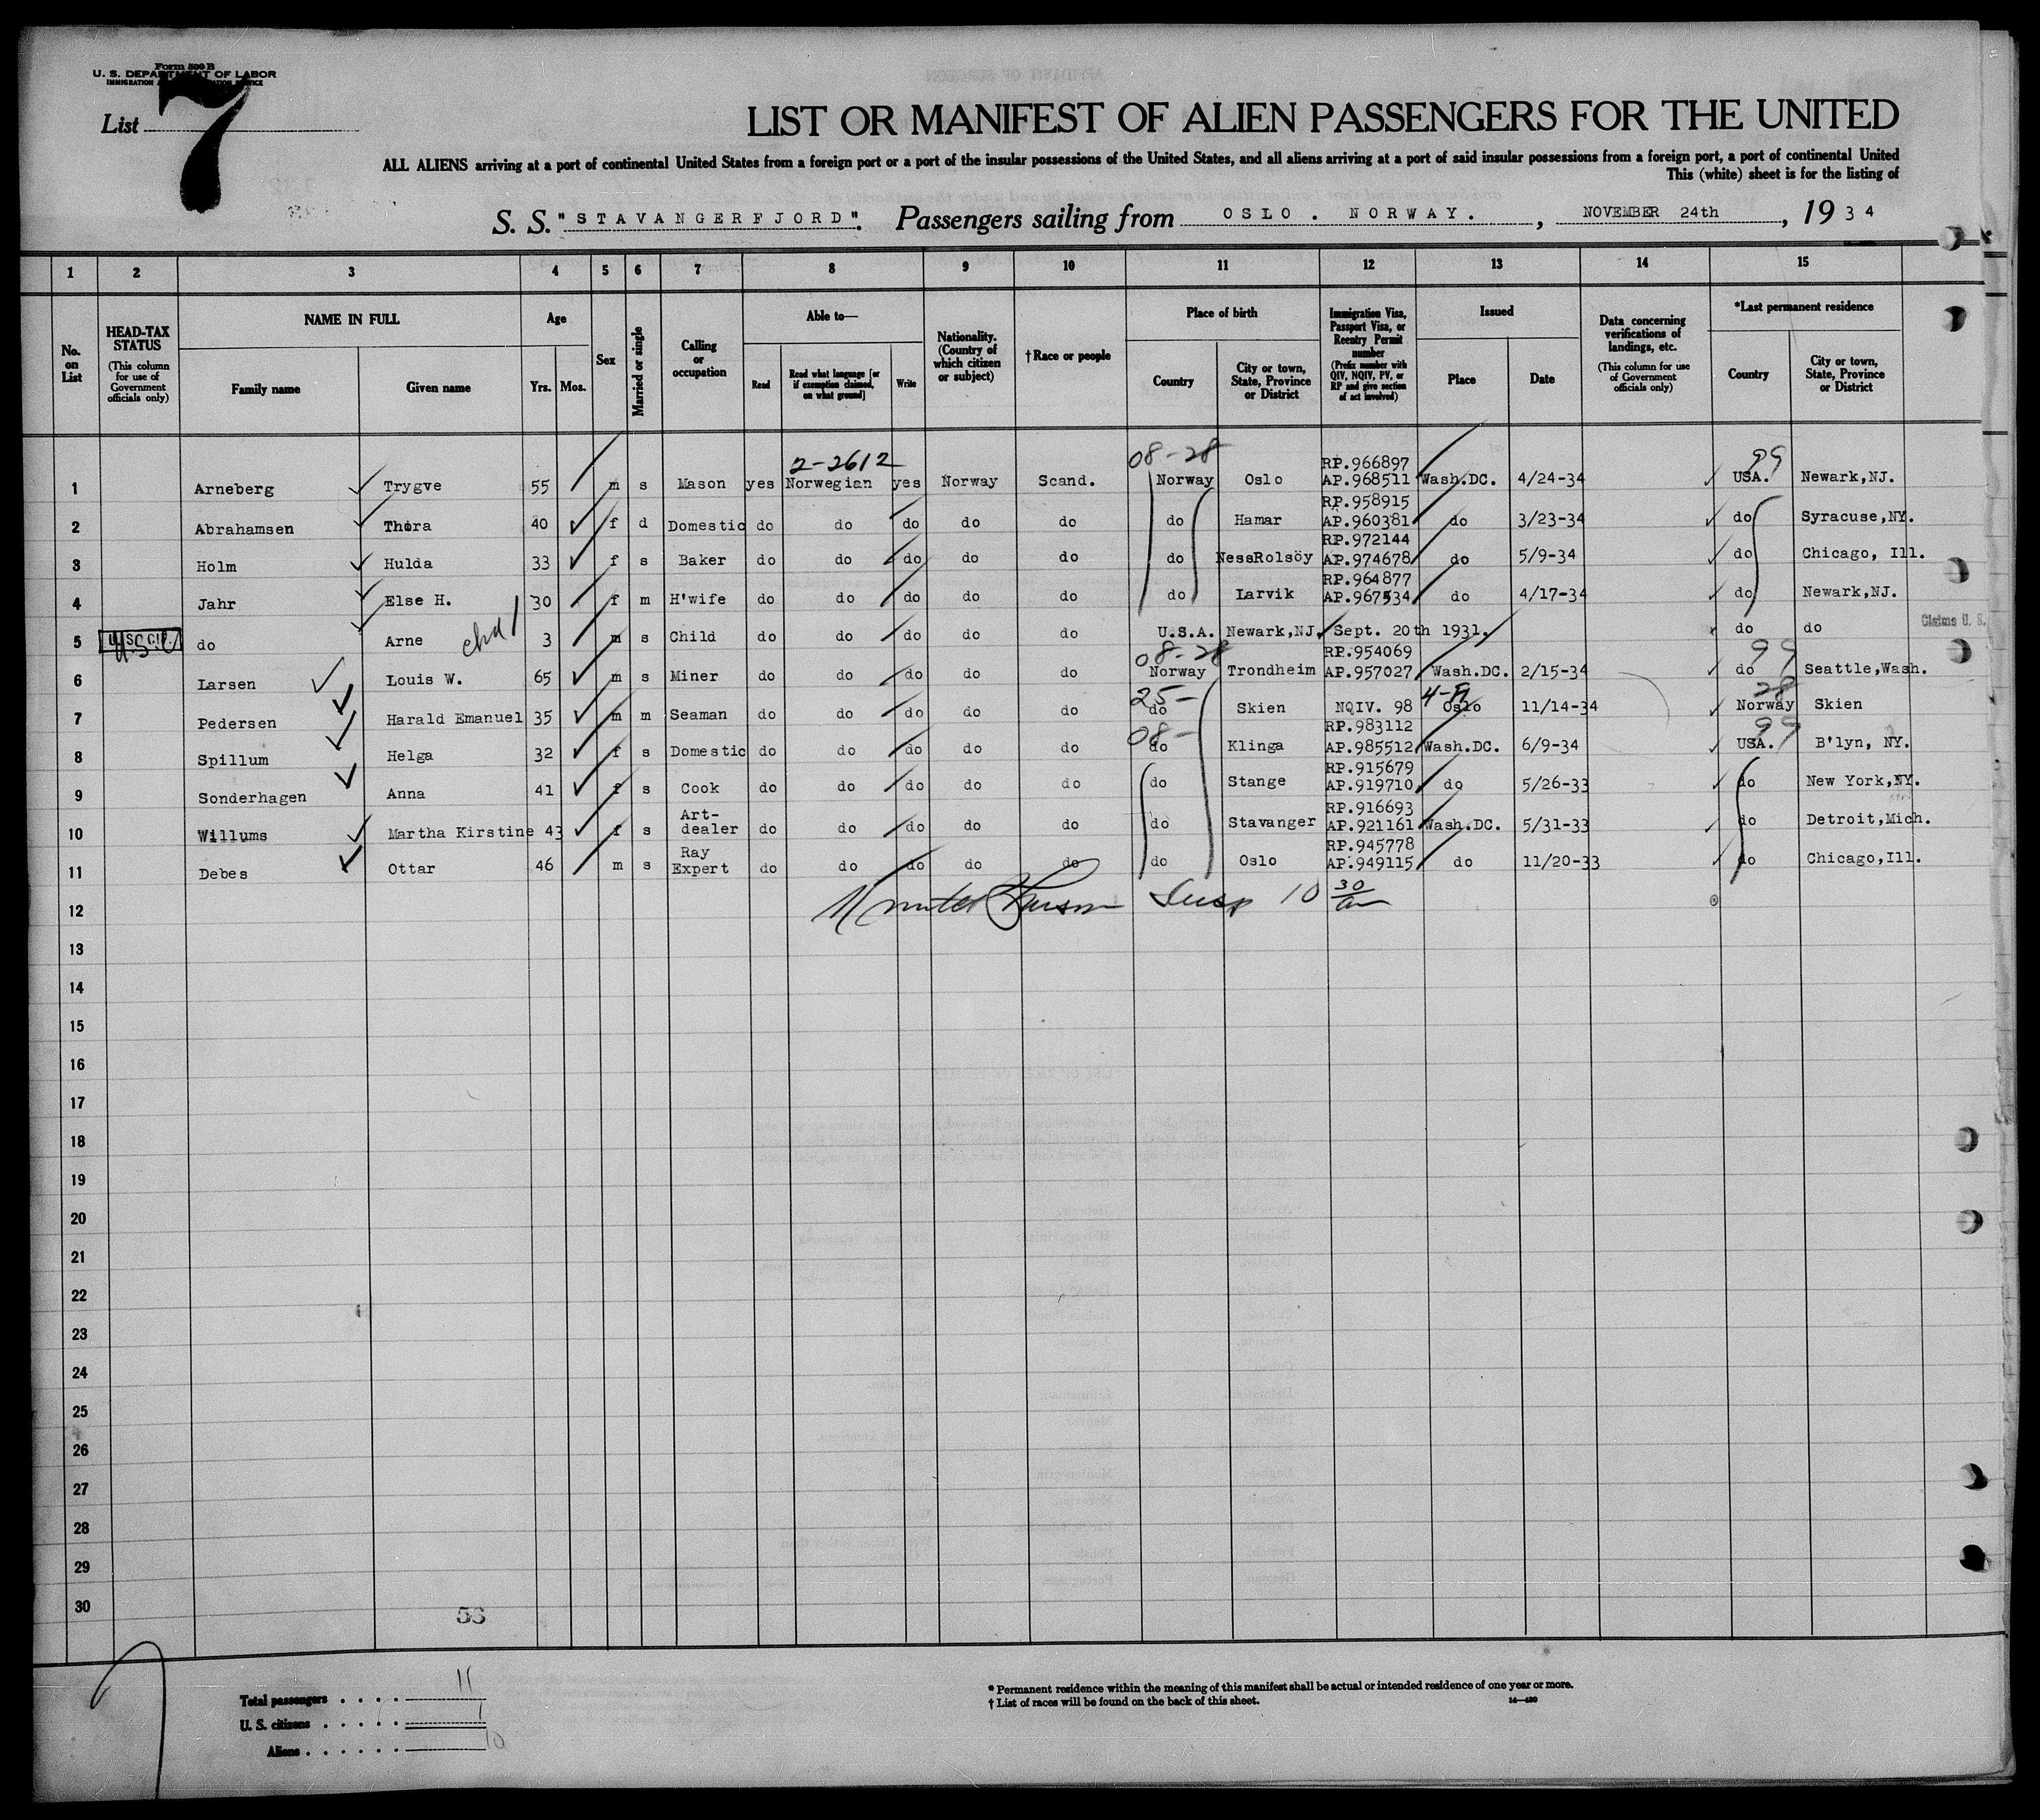 Form 500 B
U. S. DEPARTMENT OF LABOR
List 7
LIST OR MANIFEST OF ALIEN PASSENGERS FOR THE UNITED
ALL ALIENS arriving at a port of continental United States from a foreign port or a port of the insular possessions of the United States, and all aliens arriving at a port of said insular possessions from a foreign port, a port of continental United
This (white) sheet is for the listing of
S. S. "STAVANGERFJORD". Passengers sailing from OSLO. NORWAY., NOVEMBER 24th, 1934
1 2 3 4 5 6 7 8 9 10 11 12 13 14 15
No. on List
HEAD-TAX STATUS (This column for use of Government officials only)
NAME IN FULL Family name Given name
Age Yrs. Mos.
Sex
Married or single
Calling or occupation
Able to— Read Read what language [or if exemption claimed, on what ground] Write
Nationality. (Country of which citizen or subject)
† Race or people
Place of birth Country City or town, State, Province or District
Immigration Visa, Passport Visa, or Reentry Permit number (Prefix number with QIV, NQIV, PV, or RP and give section of act involved)
Issued Place Date
Data concerning verifications of landings, etc. (This column for use of Government officials only)
*Last permanent residence Country City or town, State, Province or District
2-2612 08-28 99
1 Arneberg Trygve 55 m s Mason yes Norwegian yes Norway Scand. Norway Oslo RP.966897 AP.968511 Wash.DC. 4/24-34 USA. Newark,NJ.
2 Abrahamsen Thora 40 f d Domestic do do do do do do Hamar RP.958915 AP.960381 do 3/23-34 do Syracuse,NY.
3 Holm Hulda 33 f s Baker do do do do do do NessRolsöy RP.972144 AP.974678 do 5/9-34 do Chicago, Ill.
4 Jahr Else H. 30 f m H'wife do do do do do do Larvik RP.964877 AP.967534 do 4/17-34 do Newark,NJ.
5 U.S. CIT. U.S.C do Arne 3 m s Child do do do do do U.S.A. Newark,NJ. Sept. 20th 1931. do do Claims U. S.
08-28 99
6 Larsen Louis W. 65 m s Miner do do do do do Norway Trondheim RP.954069 AP.957027 Wash.DC. 2/15-34 do Seattle,Wash.
25- 28
7 Pedersen Harald Emanuel 35 m m Seaman do do do do do do Skien NQIV. 98 Oslo 11/14-34 Norway Skien
08- 99
8 Spillum Helga 32 f s Domestic do do do do do do Klinga RP.983112 AP.985512 Wash.DC. 6/9-34 USA. B'lyn, NY.
9 Sonderhagen Anna 41 f s Cook do do do do do do Stange RP.915679 AP.919710 do 5/26-33 do New York,NY.
10 Willums Martha Kirstine 43 f s Art-dealer do do do do do do Stavanger RP.916693 AP.921161 Wash.DC. 5/31-33 do Detroit,Mich.
11 Debes Ottar 46 m s Ray Expert do do do do do do Oslo RP.945778 AP.949115 do 11/20-33 do Chicago,Ill.
12 Insp 10 30
13
14
15
16
17
18
19
20
21
22
23
24
25
26
27
28
29
30
53
Total passengers . . . . 11
U. S. citizens . . . . . 1
Aliens . . . . . . 10
* Permanent residence within the meaning of this manifest shall be actual or intended residence of one year or more.
† List of races will be found on the back of this sheet.
14—480